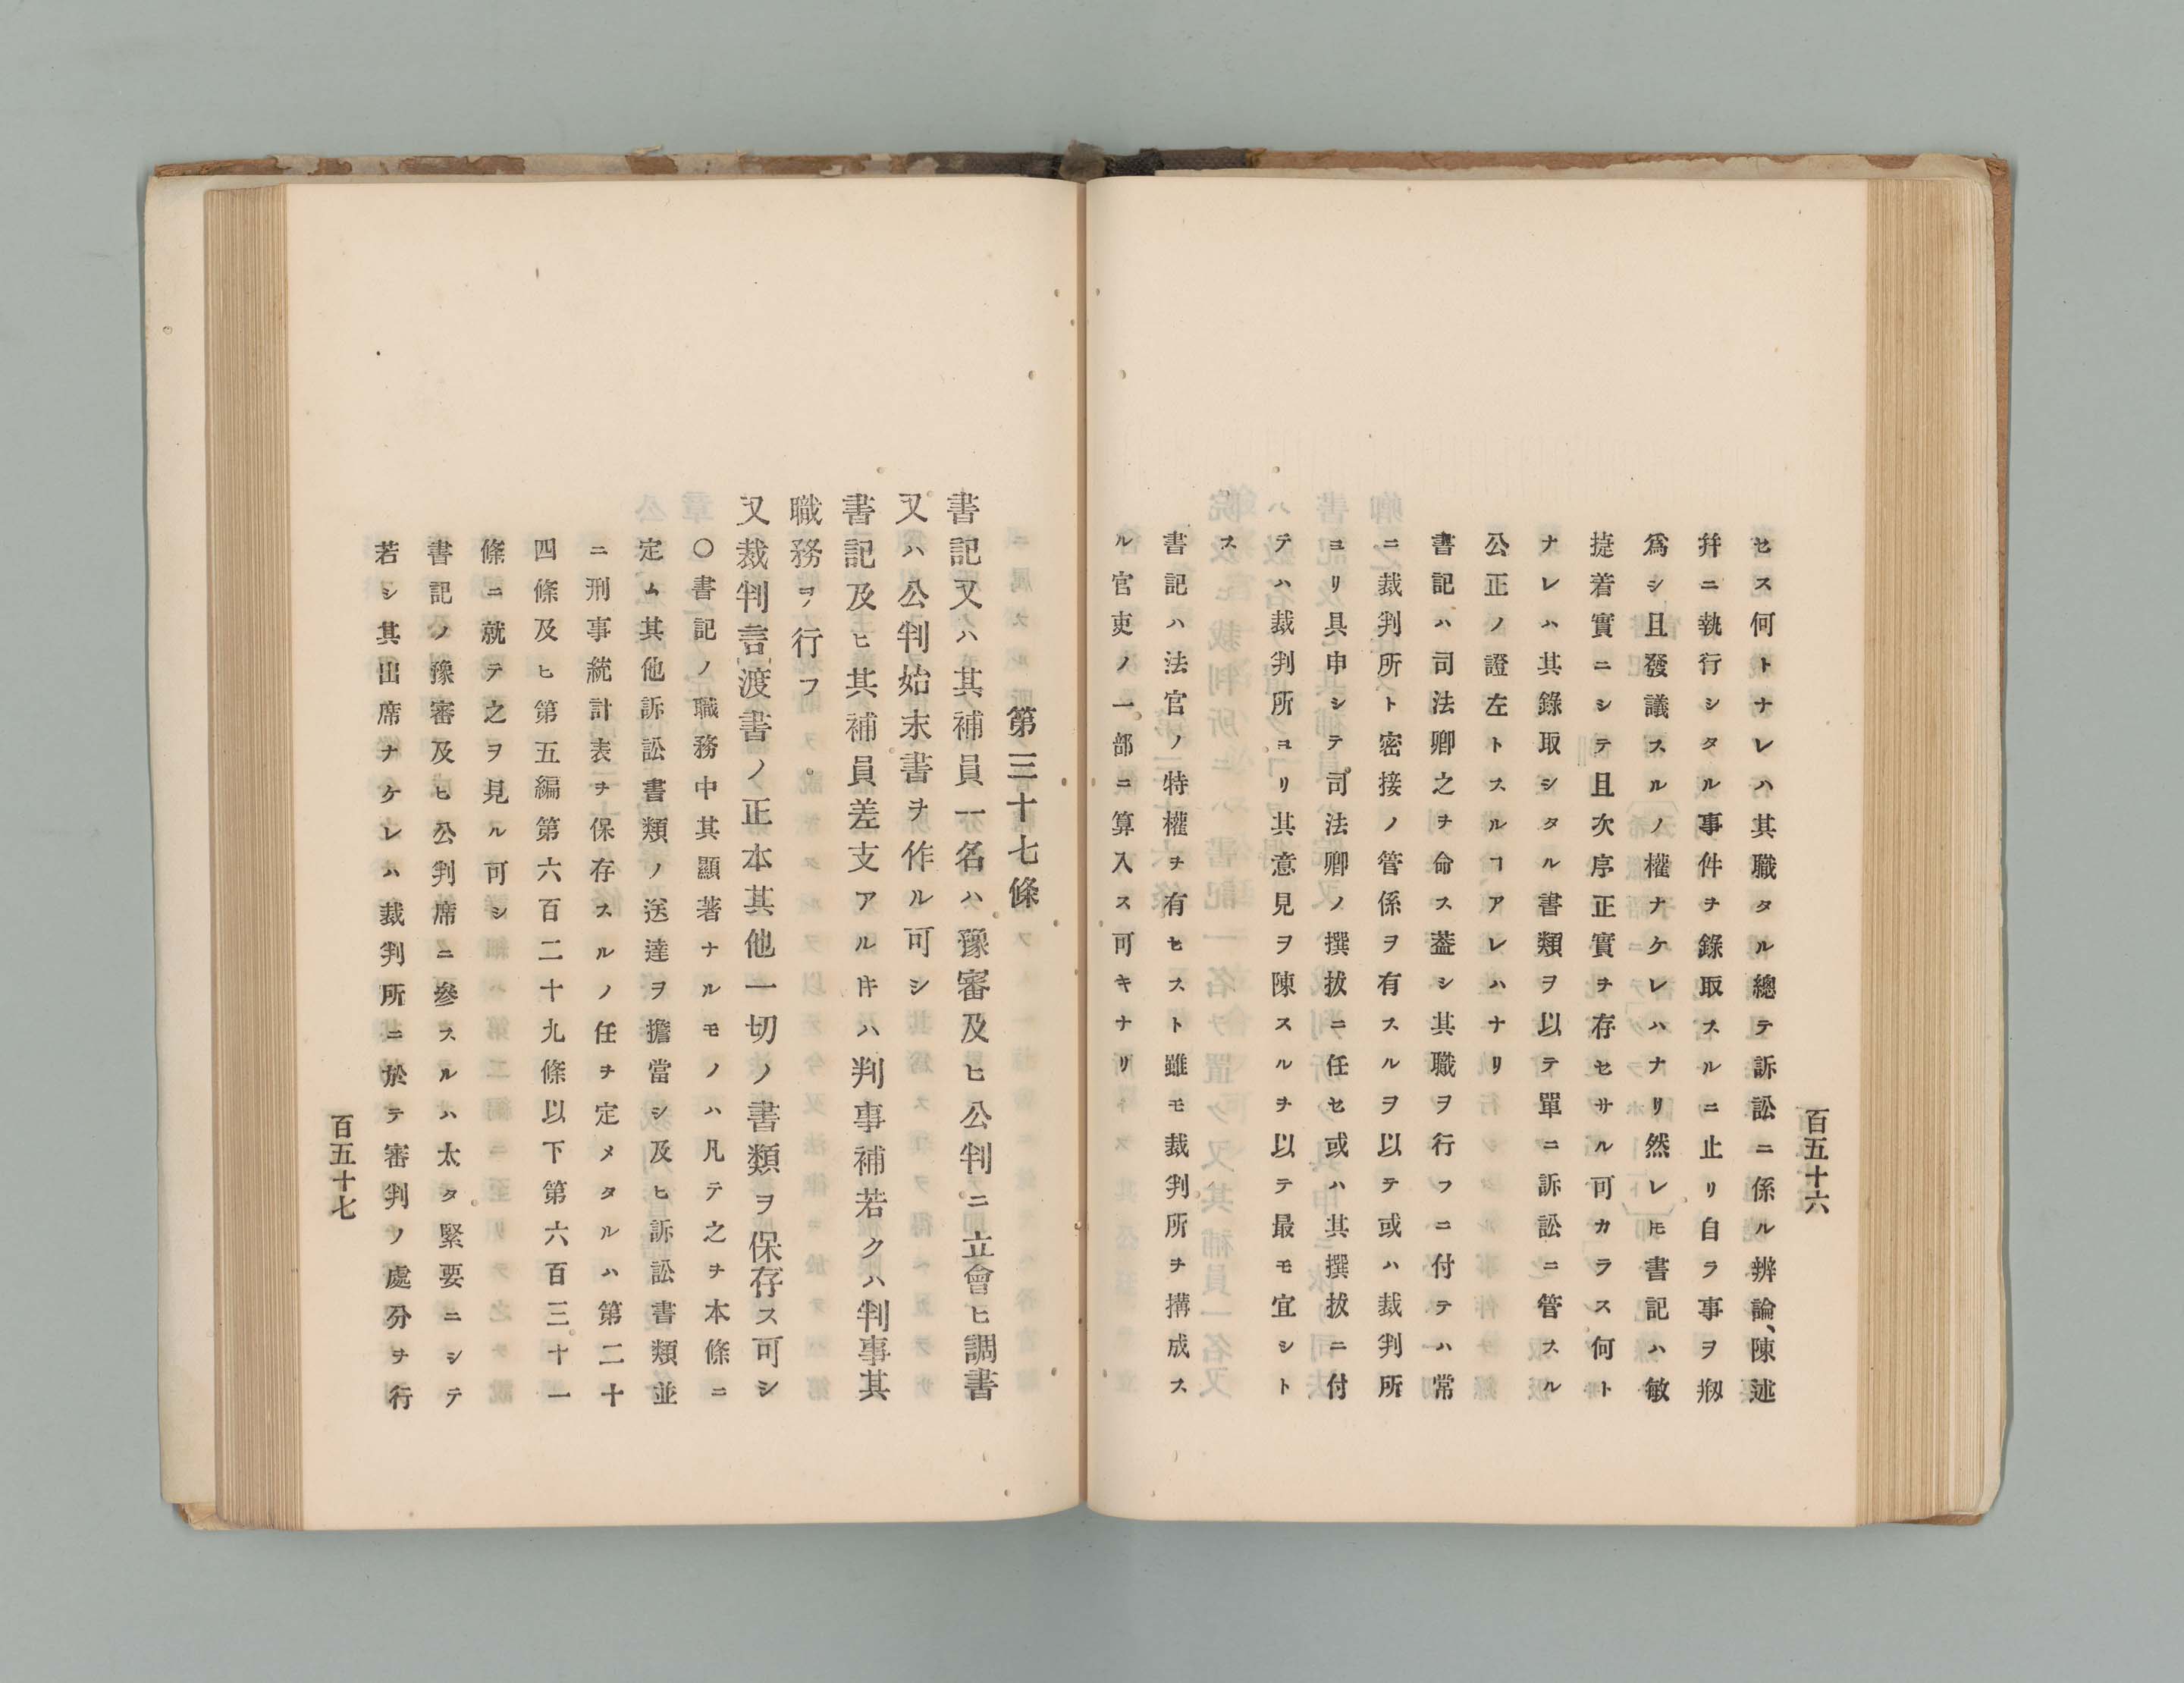 セス何トナレハ其職タル總テ訴訟ニ係ル辨論、陳述
幷ニ執行シタル事件ヲ錄取スルニ止リ自ラ事ヲ剏
爲シ且發議スルノ權ナケレハナリ然レ𪜈書記ハ敏
捷着實ニシテ且次序正實ヲ存セサル可カラス何ト
ナレハ其錄取シタル書類ヲ以テ單ニ訴訟ニ管スル
公正ノ證左トスルヿアレハナリ
書記ハ司法卿之ヲ命ス蓋シ其職ヲ行フニ付テハ常
ニ裁判所ト密接ノ管係ヲ有スルヲ以テ或ハ裁判所
ヨリ具申シテ司法卿ノ撰拔ニ任セ或ハ其撰拔ニ付
テハ裁判所ヨリ其意見ヲ陳スルヲ以テ最モ宜シト
ス
書記ハ法官ノ特權ヲ有セスト雖モ裁判所ヲ搆成ス
ル官吏ノ一部ニ算入ス可キナリ
百五十六
第三十七條
書記又ハ其補員一名ハ豫審及ヒ公判ニ立會ヒ調書
又ハ公判始末書ヲ作ル可シ
書記及ヒ其補員差支アル𪜈ハ判事補若クハ判事其
職務ヲ行フ。
又裁判言渡書ノ正本其他一切ノ書類ヲ保存ス可シ
〇書記ノ職務中其顯著ナルモノハ凡テ之ヲ本條ニ
定ム其他訴訟書類ノ送達ヲ擔當シ及ヒ訴訟書類並
ニ刑事統計表ヲ保存スルノ任ヲ定メタルハ第二十
四條及ヒ第五編第六百二十九條以下第六百三十一
條ニ就テ之ヲ見ル可シ
書記ノ豫審及ヒ公判席ニ參スルハ太タ緊要ニシテ
若シ其出席ナケレハ裁判所ニ於テ審判ノ處分ヲ行
百五十七